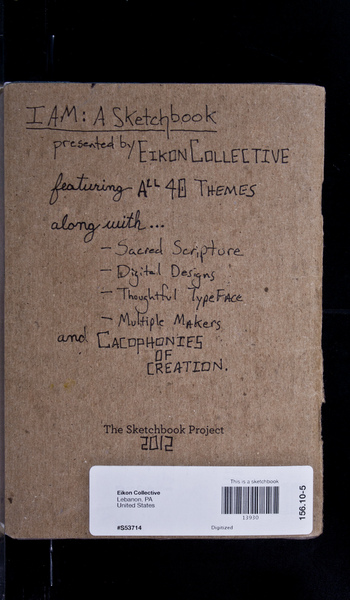 I AM: A Sketchbook
presented by EIKON COLLECTIVE
featuring ALL 40 THEMES
along with...
- Sacred Scripture
- Digital Designs
- Thoughtful TypeFace
- Multiple Makers
and CACOPHONIES
OF
CREATION.
The Sketchbook Project
2012
This is a sketchbook
Eikon Collective
Lebanon, PA
United States
13930
#S53714
Digitized
156.10-5